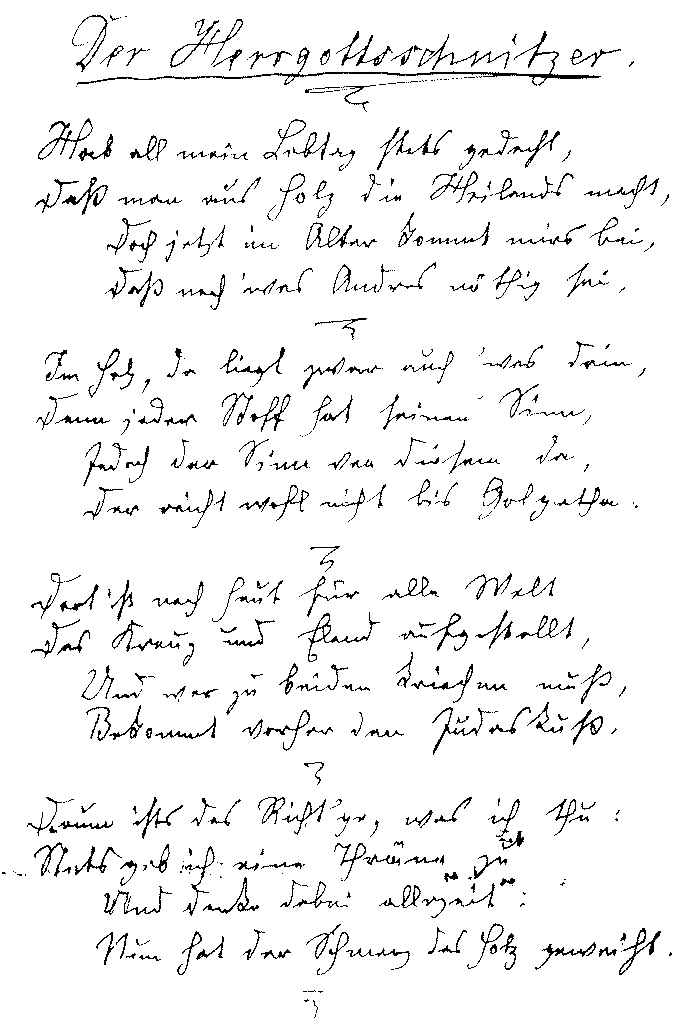 Der Herrgottsschnitzer.
Hab all mein Lebtag stets gedacht,
Daß man aus Holz die Heilands macht,
Doch jetzt im Alter kommt mirs bei,
Daß noch 'was Andres nöthig sei.
Im Holz, da liegt zwar auch 'was drin,
Denn jeder Stoff hat seinen Sinn,
Jedoch der Sinn von diesem da,
Der reicht wohl nicht bis Golgatha.
Dort ist noch heut für alle Welt
Das Kreuz und Elend aufgestellt,
Und wer zu beiden kriechen muß,
Bekommt vorher den Judaskuß.
Drum ists das Richt'ge, was ich thu:
Stets geb ich eine Thräne zu
Und denke dabei allezeit:
Nun hat der Schmerz das Holz geweiht.